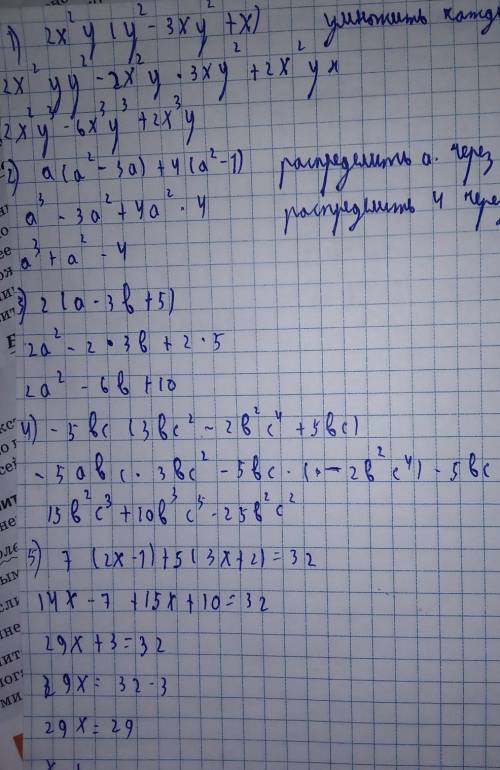 1) 2x²y(y² - 3xy² + x) умножить
2x²yy² - 2x²y · 3xy² + 2x²yx
2x²y³ - 6x³y³ + 2x³y
2) a(a² - 3a) + 4(a² - 1) распределить a. через
a³ - 3a² + 4a² · 4 распределить 4
a³ + a² - 4
3) 2(a - 3в + 5)
2a² - 2 · 3в + 2 · 5
2a² - 6в + 10
4) - 5вс (3вс² - 2в²с⁴ + 5вс)
- 5авс · 3вс² - 5вс · ( - 2в²с⁴) - 5вс
15в²с³ + 10в³с⁵ - 25в²с²
5) 7 (2x - 1) + 5(3x + 2) = 32
14x - 7 + 15x + 10 = 32
29x + 3 = 32
29x = 32 - 3
29x = 29